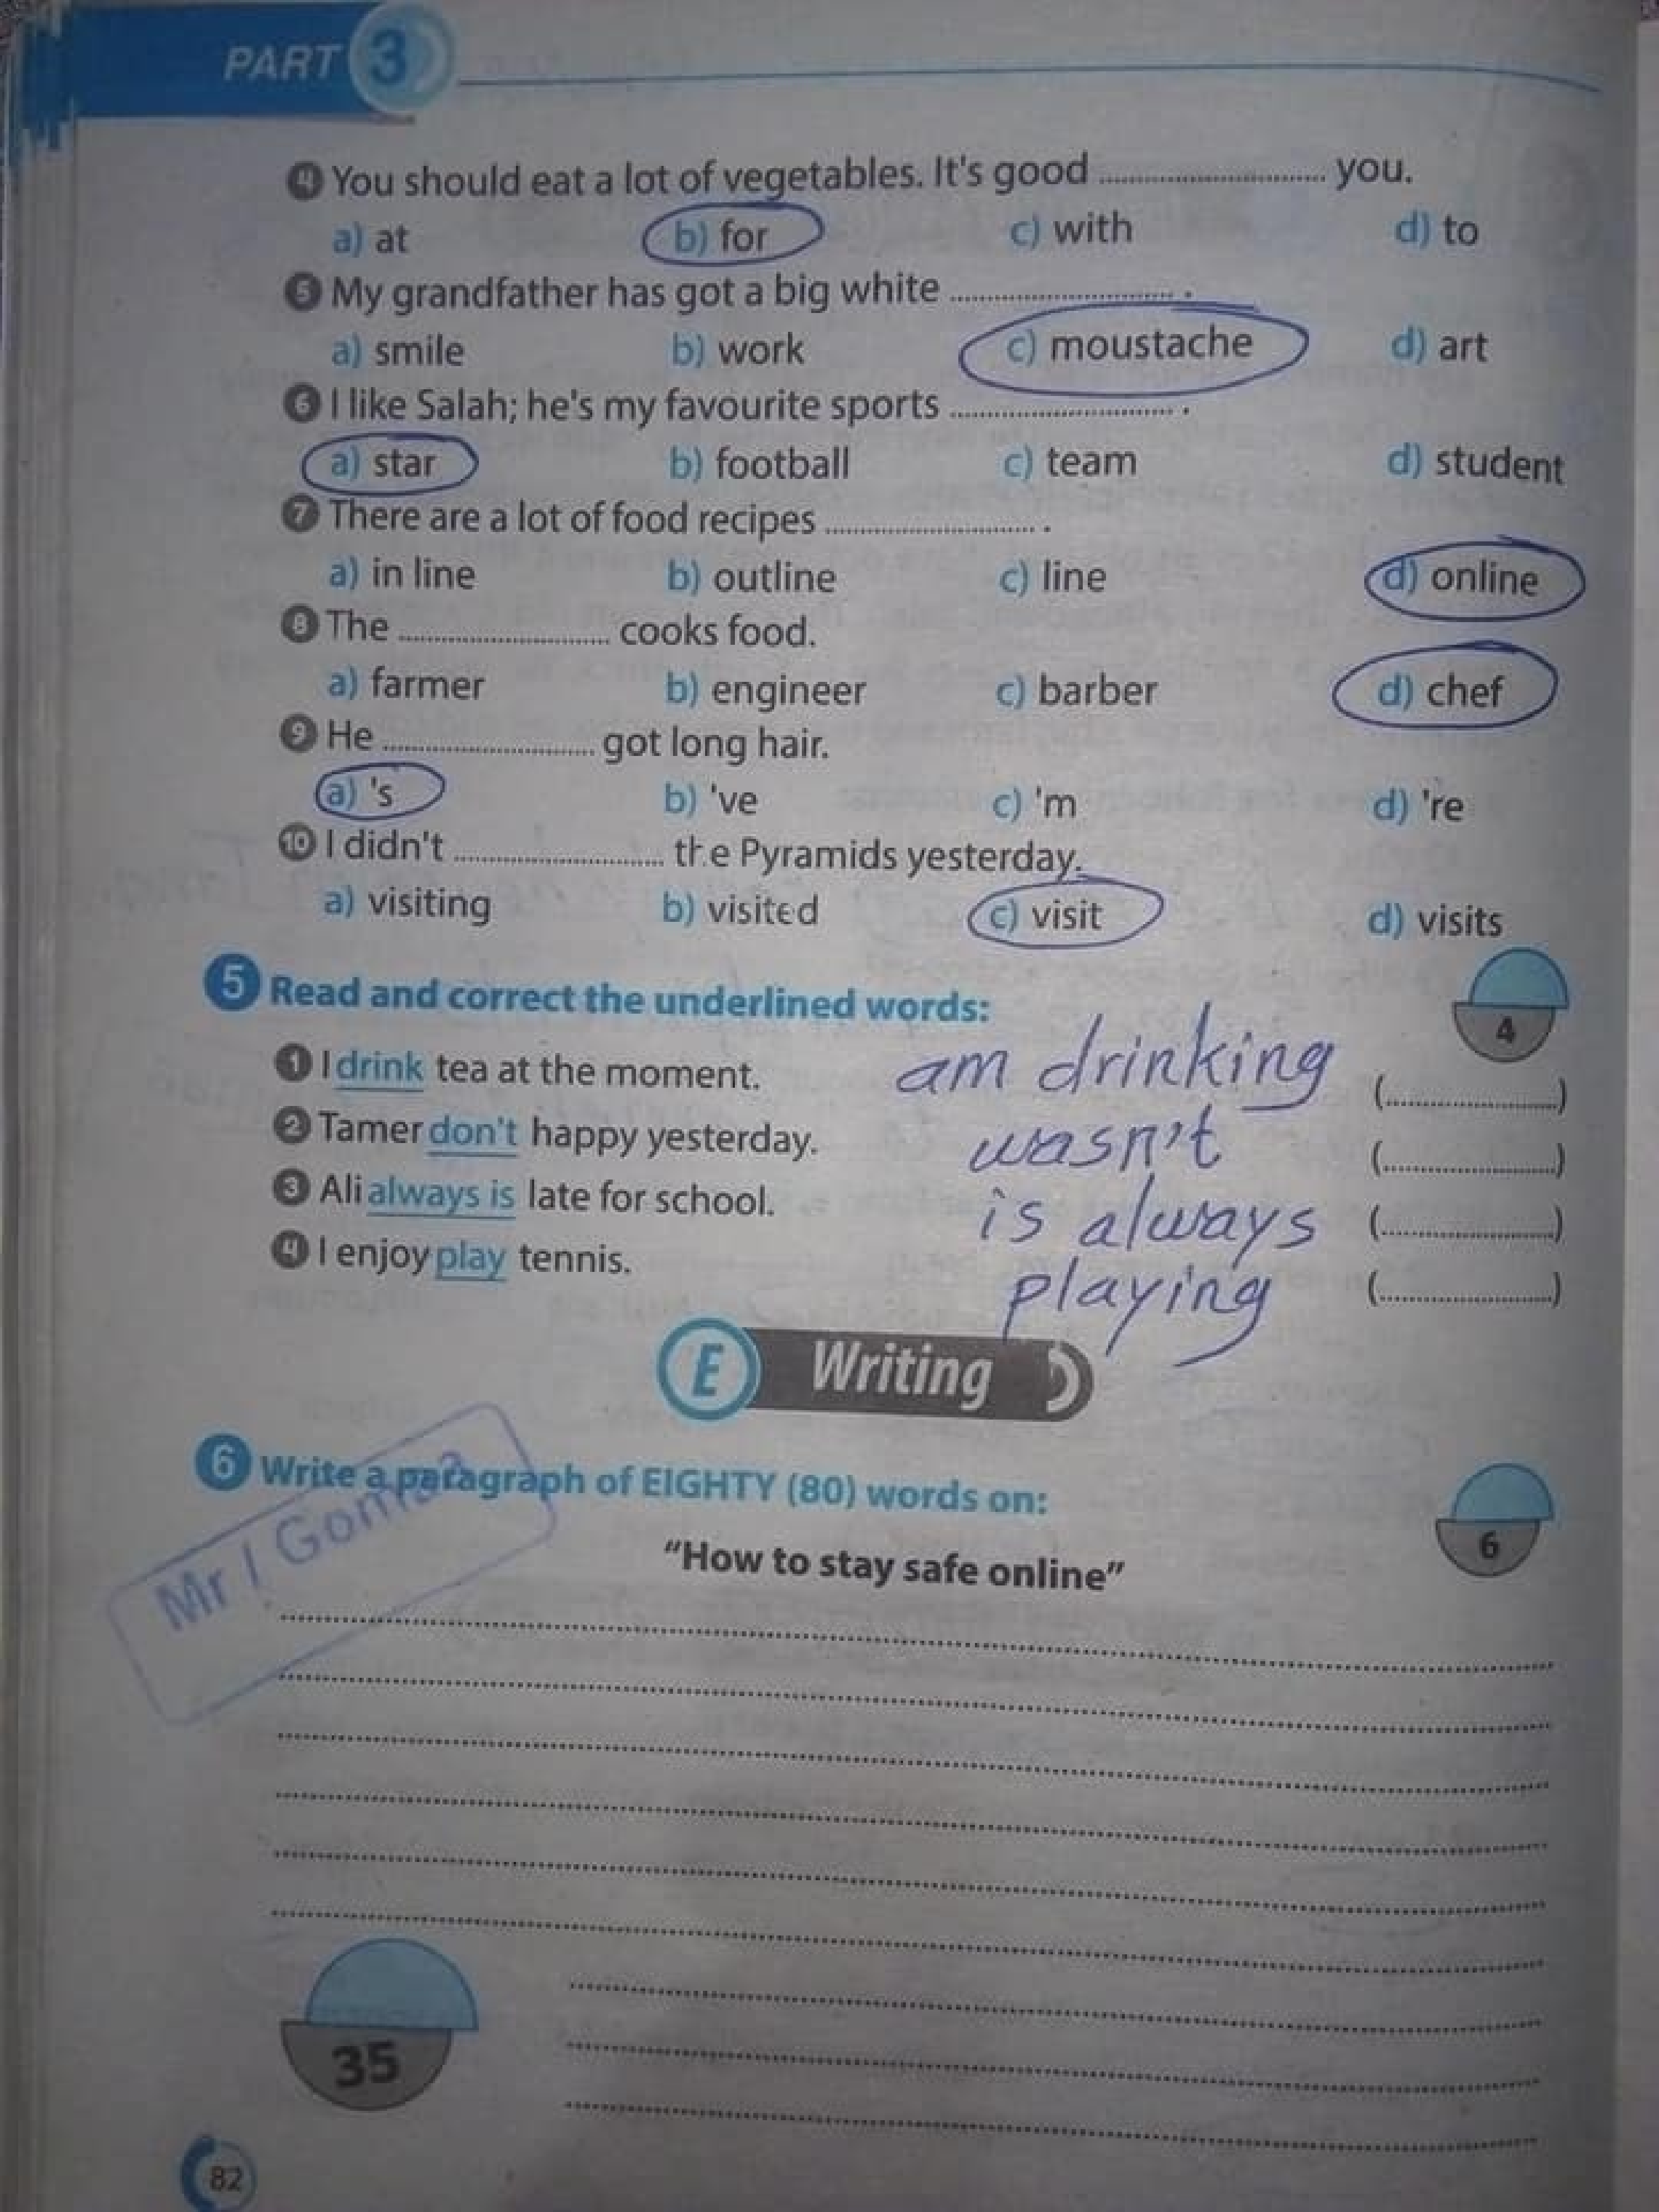 PART 3
4 You should eat a lot of vegetables. It's good .............................. you.
a) at b) for c) with d) to
5 My grandfather has got a big white .............................. .
a) smile b) work c) moustache d) art
6 I like Salah; he's my favourite sports .............................. .
a) star b) football c) team d) student
7 There are a lot of food recipes .............................. .
a) in line b) outline c) line d) online
8 The .............................. cooks food.
a) farmer b) engineer c) barber d) chef
9 He .............................. got long hair.
a) 's b) 've c) 'm d) 're
10 I didn't .............................. the Pyramids yesterday.
a) visiting b) visited c) visit d) visits
5 Read and correct the underlined words:
4
1 I drink tea at the moment. am drinking (..............................)
2 Tamer don't happy yesterday. wasn't (..............................)
3 Ali always is late for school. is always (..............................)
4 I enjoy play tennis. playing (..............................)
E Writing
6 Write a paragraph of EIGHTY (80) words on:
6
"How to stay safe online"
Mr /
35
82